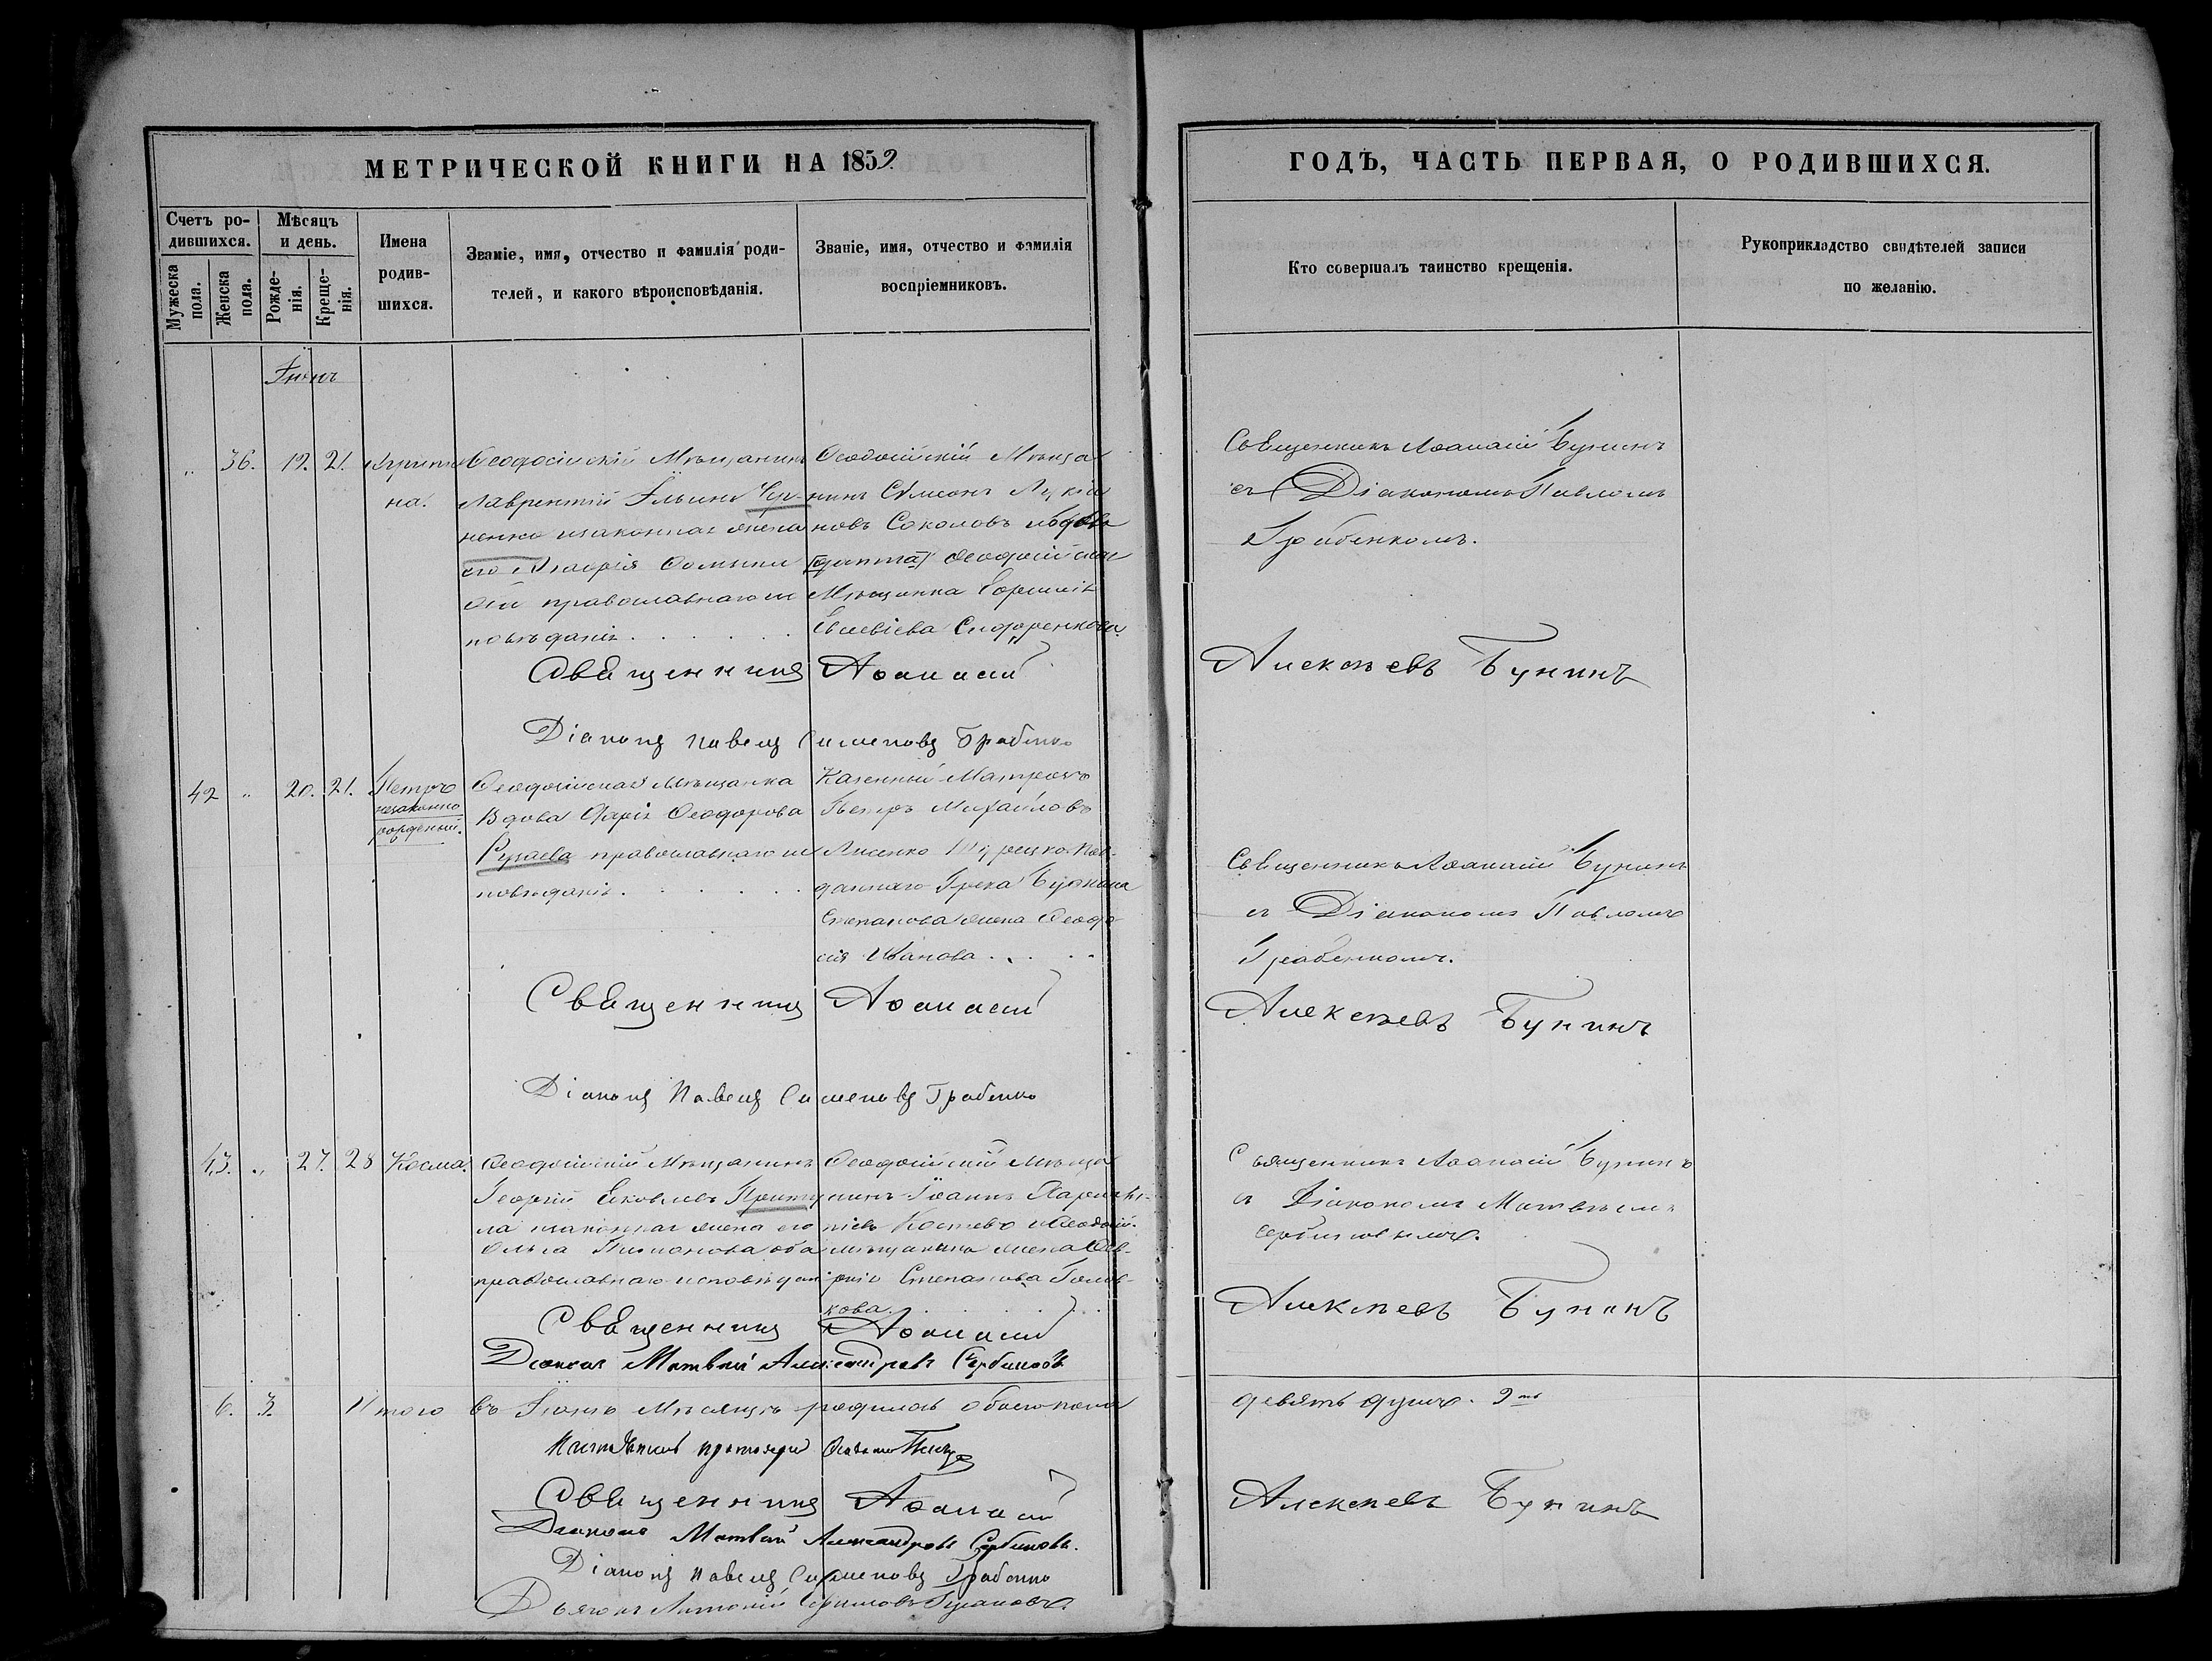 МЕТРИЧЕСКОЙ КНИГИ НА 1859.
ГОДЪ, ЧАСТЬ ПЕРВАЯ, О РОДИВШИХСЯ.
Счетъ ро-
дившихся.
Мужеска
пола.
Женска
пола.
Мѣсяцъ
и день.
Рожде-
нія.
Креще-
нія.
Имена
родив-
шихся.
Званіе, имя, отчество и фамилія роди-
телей, и какого вѣроисповѣданія.
Званіе, имя, отчество и фамилія
воспріемниковъ.
Кто совершалъ таинство крещенія.
Рукоприкладство свидѣтелей записи
по желанію.
Іюнь
„ 36. 19. 21.
на.
Ѳеодосійскій Мѣщанинъ
Лаврентій Ильинъ
ненко и законная жена
его
православнаго ис
повѣданія
Ѳеодосійскій Мѣща
нинъ Сѵмеонъ
новъ Соколовъ
Ѳеодосійская
Мѣщанка
Евсевіева
Священникъ Аѳанасій Бунинъ
съ Діакономъ Павломъ
Грабенкомъ.
Священникъ Аѳанасій Алексѣевъ Бунинъ
Діаконъ Павелъ Симеоновъ Грабенко
42 „ 20. 21. Петръ
незаконно
рожденный.
Ѳеодосійская Мѣщанка
Вдова Марія Ѳеодорова
православнаго ис
повѣданія.
Казенный Матрозъ
Петръ Михайловъ
Лисенко Турецко-под-
даннаго Грека
Степанова жена Ѳеодо
сія Иванова
Священникъ Аѳанасій Бунинъ
съ Діакономъ Павломъ
Грабенкомъ.
Священникъ Аѳанасій Алексѣевъ Бунинъ
Діаконъ Павелъ Симеоновъ Грабенко
43. „ 27. 28 Косма.
Ѳеодосійскій Мѣщанинъ
Георгій Яковлевъ Приту
ла законная жена его
Ольга оба
православнаго исповѣданія
Ѳеодосійскій Мѣща
нинъ Іоаннъ
мѣщанина жена
Степанова Голов-
кова.
Священникъ Аѳанасій Бунинъ
съ Діакономъ Матвѣемъ
Сербиновымъ.
Священникъ Аѳанасій Алексѣевъ Бунинъ
Діаконъ Матвѣй Александровъ Сербиновъ
6. 3. Итого въ Іюнь Мѣсяцъ родилось обоего пола девять душъ. 9
Священникъ Аѳанасій Алексѣевъ Бунинъ
Діаконъ Матвѣй Александровъ Сербиновъ.
Діаконъ Павелъ Симеоновъ Грабенко
Дьячокъ